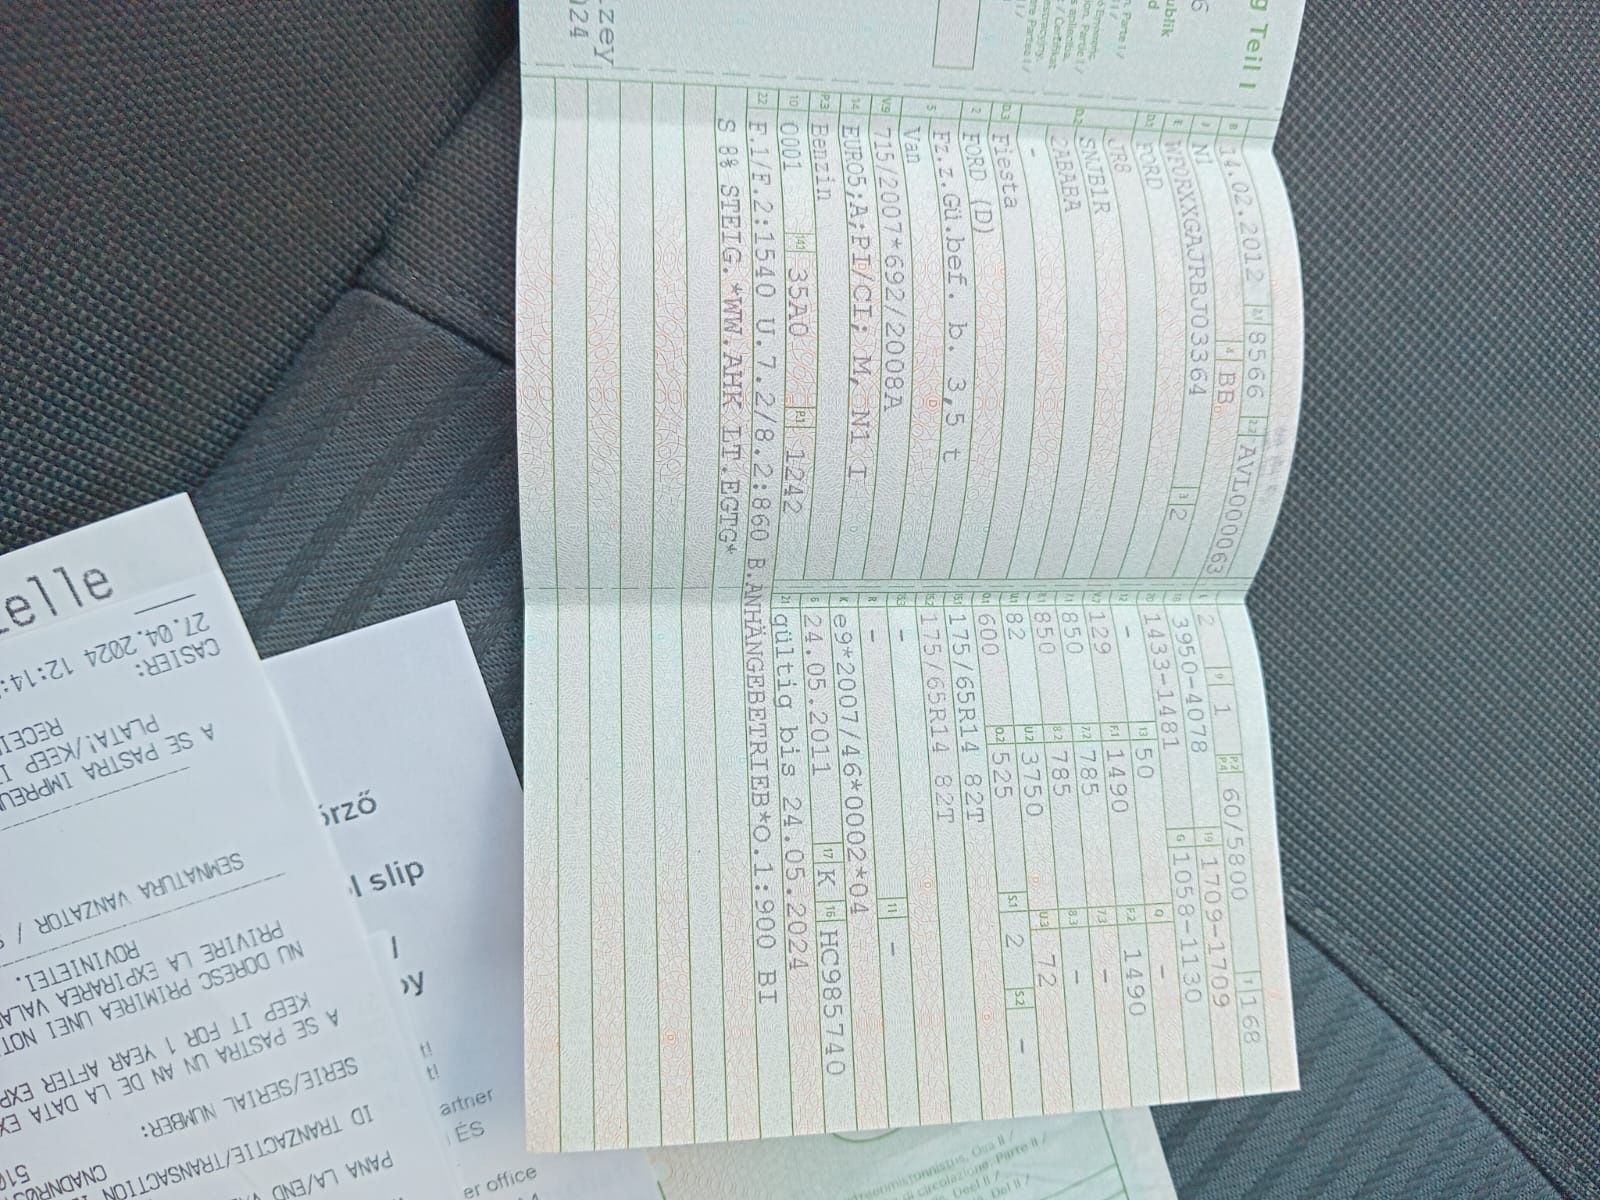 g Teil I
ublik
zey
024
B 14.02.2012 2.1 8566 2.2 AVL000063
J N1 4 BB
E WF0RXXGAJRBJ03364 3 2
D.1 FORD
D.2 JR8
SNJB1R
2ABABA
-
D.3 Fiesta
2 FORD (D)
5 Fz.z.Gü.bef. b. 3,5 t
Van
V.9 715/2007*692/2008A
14 EURO5;A;PI/CI; M, N1 I
P.3 Benzin
10 0001 14.1 35A0 P.1 1242
22 F.1/F.2:1540 U.7.2/8.2:860 B.ANHÄNGEBETRIEB*O.1:900 BI
S 8% STEIG.*WW.AHK LT.EGTG*
L 2 9 1 P.2 P.4 60/5800 T 168
18 3950-4078 19 1709-1709
20 1433-1481 G 1058-1130
12 - 13 50 Q -
V.7 129 F.1 1490 F.2 1490
7.1 850 7.2 785 7.3 -
8.1 850 8.2 785 8.3 -
U.1 82 U.2 3750 U.3 72
O.1 600 O.2 525 S.1 2 S.2 -
15.1 175/65R14 82T
15.2 175/65R14 82T
15.3 -
R - 11 -
K e9*2007/46*0002*04
6 24.05.2011 17 K 16 HC985740
21 gültig bis 24.05.2024
elle
27.04.2024 12:14:
CASIER:
RECEI
PLATA!/KEEP I
A SE PASTRA IMPREU
SEMNATURA VANZATOR / S
ROVINIETEI.
PRIVIRE LA EXPIRAREA VALA
NU DORESC PRIMIREA UNEI NOT
KEEP IT FOR 1 YEAR AFTER EXP
A SE PASTRA UN AN DE LA DATA EX
SERIE/SERIAL NUMBER:
ID TRANZACTIE/TRANSACTION
PANA LA/END
őrző
l slip
/
py
artner
ÉS
er office